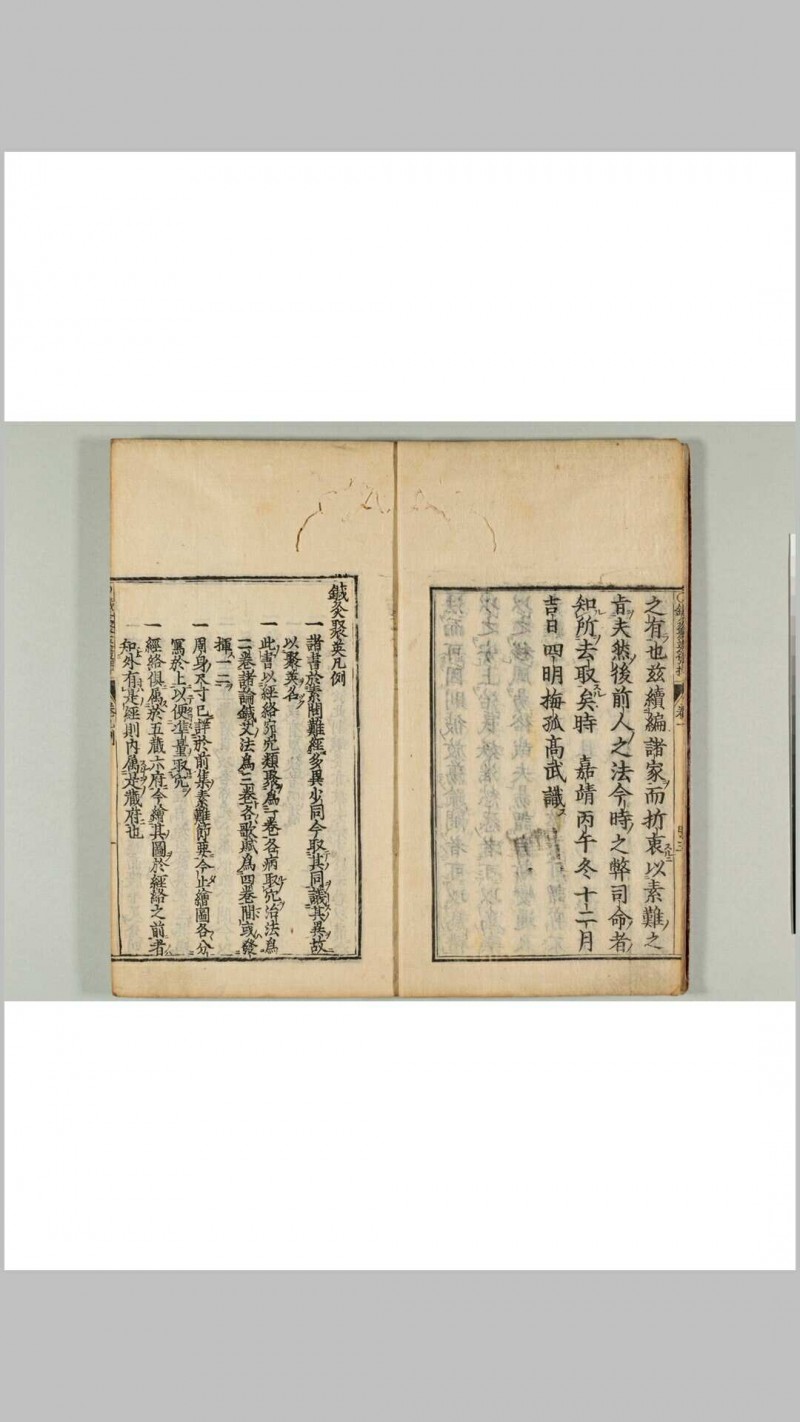 之有也玆續編諸家而折衷以素難之
旨夫然後前人之法今時之弊司命者
知所去取矣時　嘉靖丙午冬十二月
吉日四明梅孤高武識
鍼灸聚英凡例
一諸書於素問難經多異少同今取其同議其異故
以聚英名
一此書以經絡俞穴類聚爲一卷各病取穴治法爲
二卷諸論鍼艾法爲三卷各歌賦爲四卷間或發
揮一二
一周身尺寸已詳於前集素難節要今止繪圖各分
寫於上以便準量取穴
一經絡俱屬於五藏六府今繪其圖於經絡之前者
知外有是經則内屬是藏府也